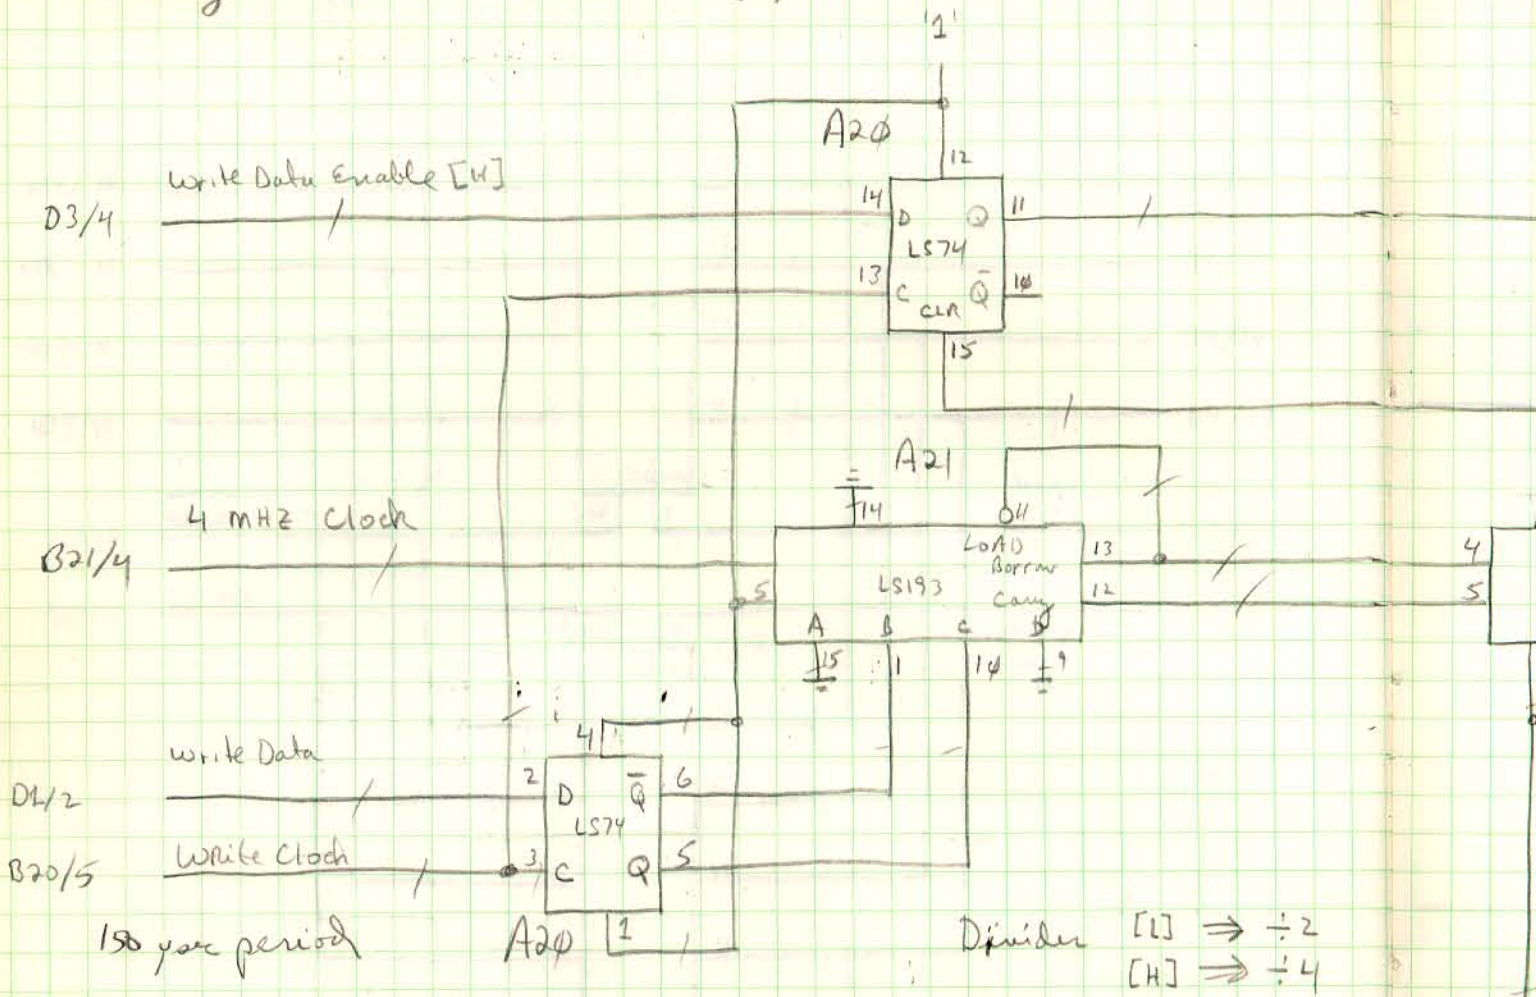 '1'
A2φ
12
Write Data Enable [H]
D3/4
14
D
Q
11
LS74
13
C
Q̄
1φ
CLR
15
A21
14
11
4 MHZ Clock
B21/4
LOAD
13
4
Borrow
5
LS193
Carry
12
5
A
B
C
D
15
1
1φ
9
4
Write Data
D1/2
2
D
Q̄
6
LS74
Write Clock
B20/5
3
C
Q
5
1
period
A2φ
Divider [L] ⇒ ÷2
[H] ⇒ ÷4